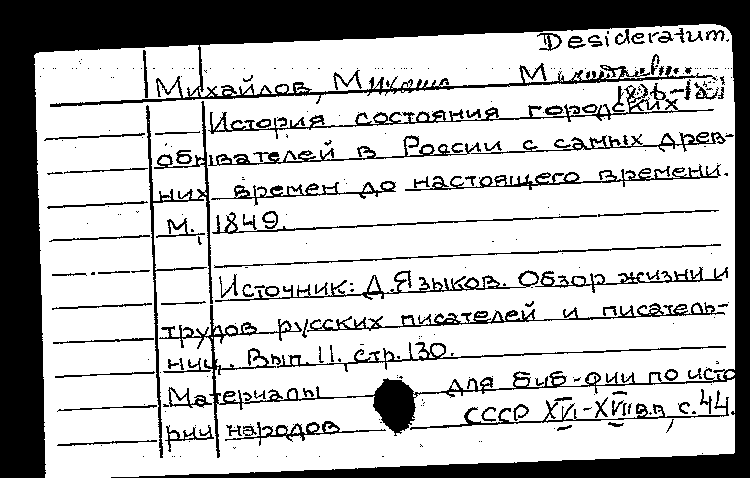 Desideratum.
Михайлов, Михаил М
История состояния городских
обывателей в России с самых древ-
них времен до настоящего времени.
М., 1849.
Источник: Д. Языков. Обзор жизни и
трудов русских писателей и писатель-
ниц. Вып. 11, стр. 130.
Материалы для биб-фии по исто
рии народов СССР XVI-XVIIвв, с. 44.